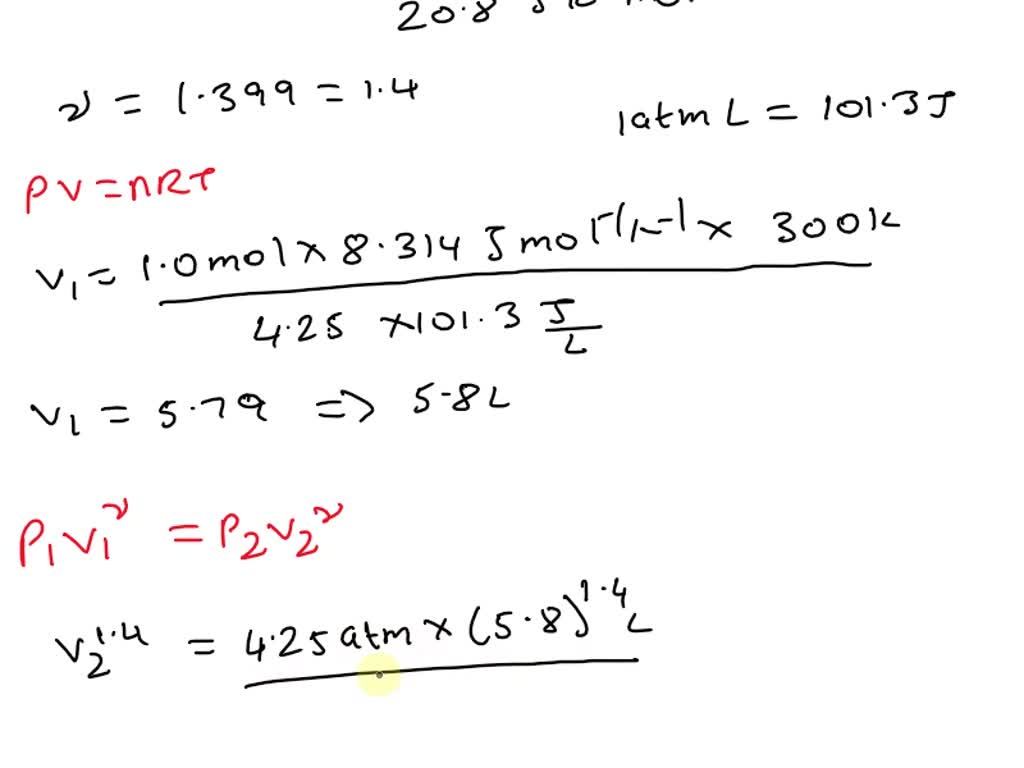 20.8 J
γ = 1.399 = 1.4
1 atm L = 101.3 J
PV = nRT
V₁ = 1.0 mol × 8.314 J mol⁻¹ K⁻¹ × 300 K
4.25 × 101.3 J/L
V₁ = 5.79 => 5.8 L
P₁V₁^γ = P₂V₂^γ
V₂^1.4 = 4.25 atm × (5.8)^1.4 L